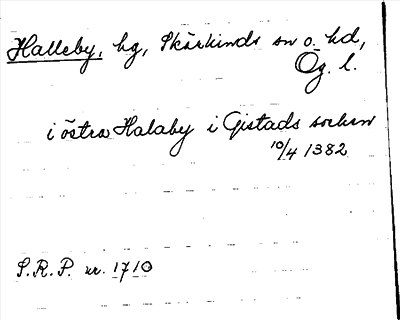 Halleby, hg, Skärkinds sn o. hd,
Ög. l.
i östra Halaby i Gistads socken
10/4 1382
S.R.P. nr. 1710